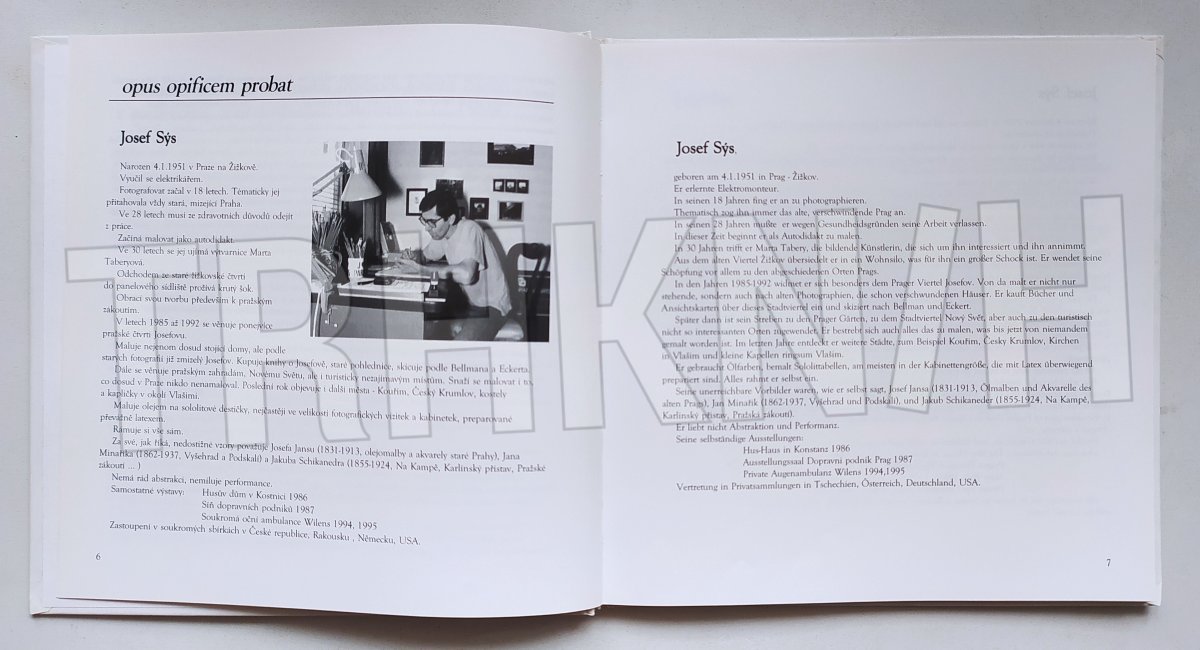 opus opificem probat
Josef Sýs
Narozen 4.1.1951 v Praze na Žižkově.
Vyučil se elektrikářem.
Fotografovat začal v 18 letech. Tématicky jej
přitahovala vždy stará, mizející Praha.
Ve 28 letech musí ze zdravotních důvodů odejít
z práce.
Začíná malovat jako autodidakt.
Ve 30 letech se jej ujímá výtvarnice Marta
Taberyová.
Odchodem ze staré žižkovské čtvrti
do panelového sídliště prožívá krutý šok.
Obrací svou tvorbu především k pražským
zákoutím.
V letech 1985 až 1992 se věnuje ponejvíce
pražské čtvrti Josefovu.
Maluje nejenom dosud stojící domy, ale podle
starých fotografií již zmizelý Josefov. Kupuje knihy o Josefově, staré pohlednice, skicuje podle Bellmana a Eckerta.
Dále se věnuje pražským zahradám, Novému Světu, ale i turisticky nezajímavým místům. Snaží se malovat i to,
co dosud v Praze nikdo nenamaloval. Poslední rok objevuje i další města - Kouřim, Český Krumlov, kostely
a kapličky v okolí Vlašimi.
Maluje olejem na sololitové destičky, nejčastěji ve velikosti fotografických vizitek a kabinetek, preparované
převážně latexem.
Rámuje si vše sám.
Za své, jak říká, nedostižné vzory považuje Josefa Jansu (1831-1913, olejomalby a akvarely staré Prahy), Jana
Minaříka (1862-1937, Vyšehrad a Podskalí) a Jakuba Schikanedra (1855-1924, Na Kampě, Karlínský přístav, Pražské
zákoutí ... )
Nemá rád abstrakci, nemiluje performance.
Samostatné výstavy: Husův dům v Kostnici 1986
Síň dopravních podniků 1987
Soukromá oční ambulance Wilens 1994, 1995
Zastoupení v soukromých sbírkách v České republice, Rakousku , Německu, USA.
6
Josef Sýs.
geboren am 4.1.1951 in Prag - Žižkov.
Er erlernte Elektromonteur.
In seinen 18 Jahren fing er an zu photographieren.
Thematisch zog ihn immer das alte, verschwindende Prag an.
In seinen 28 Jahren mußte er wegen Gesundheitsgründen seine Arbeit verlassen.
In dieser Zeit beginnt er als Autodidakt zu malen.
In 30 Jahren trifft er Marta Tabery, die bildende Künstlerin, die sich um ihn interessiert und ihn annimmt.
Aus dem alten Viertel Žižkov übersiedelt er in ein Wohnsilo, was für ihn ein großer Schock ist. Er wendet seine
Schöpfung vor allem zu den abgeschiedenen Orten Prags.
In den Jahren 1985-1992 widmet er sich besonders dem Prager Viertel Josefov. Von da malt er nicht nur
stehende, sondern auch nach alten Photographien, die schon verschwundenen Häuser. Er kauft Bücher und
Ansichtskarten über dieses Stadtviertel ein und skiziert nach Bellman und Eckert.
Später dann ist sein Streben zu den Prager Gärten, zu dem Stadtviertel Nový Svět, aber auch zu den turistisch
nicht so interessanten Orten zugewendet. Er bestrebt sich auch alles das zu malen, was bis jetzt von niemandem
gemalt worden ist. Im letzten Jahre entdeckt er weitere Städte, zum Beispiel Kouřim, Český Krumlov, Kirchen
in Vlašim und kleine Kapellen ringsum Vlašim.
Er gebraucht Ölfarben, bemalt Sololittabellen, am meisten in der Kabinettengröße, die mit Latex überwiegend
preparierт sind. Alles rahmt er selbst ein.
Seine unerreichbare Vorbilder waren, wie er selbst sagt, Josef Jansa (1831-1913, Ölmalben und Akvarelle des
alten Prags), Jan Minařík (1862-1937, Vyšehrad und Podskalí), und Jakub Schikaneder (1855-1924, Na Kampě,
Karlínský přístav, Pražská zákoutí).
Er liebt nicht Abstraktion und Performanz.
Seine selbständige Ausstellungen:
Hus-Haus in Konstanz 1986
Ausstellungssaal Dopravní podnik Prag 1987
Private Augenambulanz Wilens 1994,1995
Vertretung in Privatsammlungen in Tschechien, Österreich, Deutschland, USA.
7